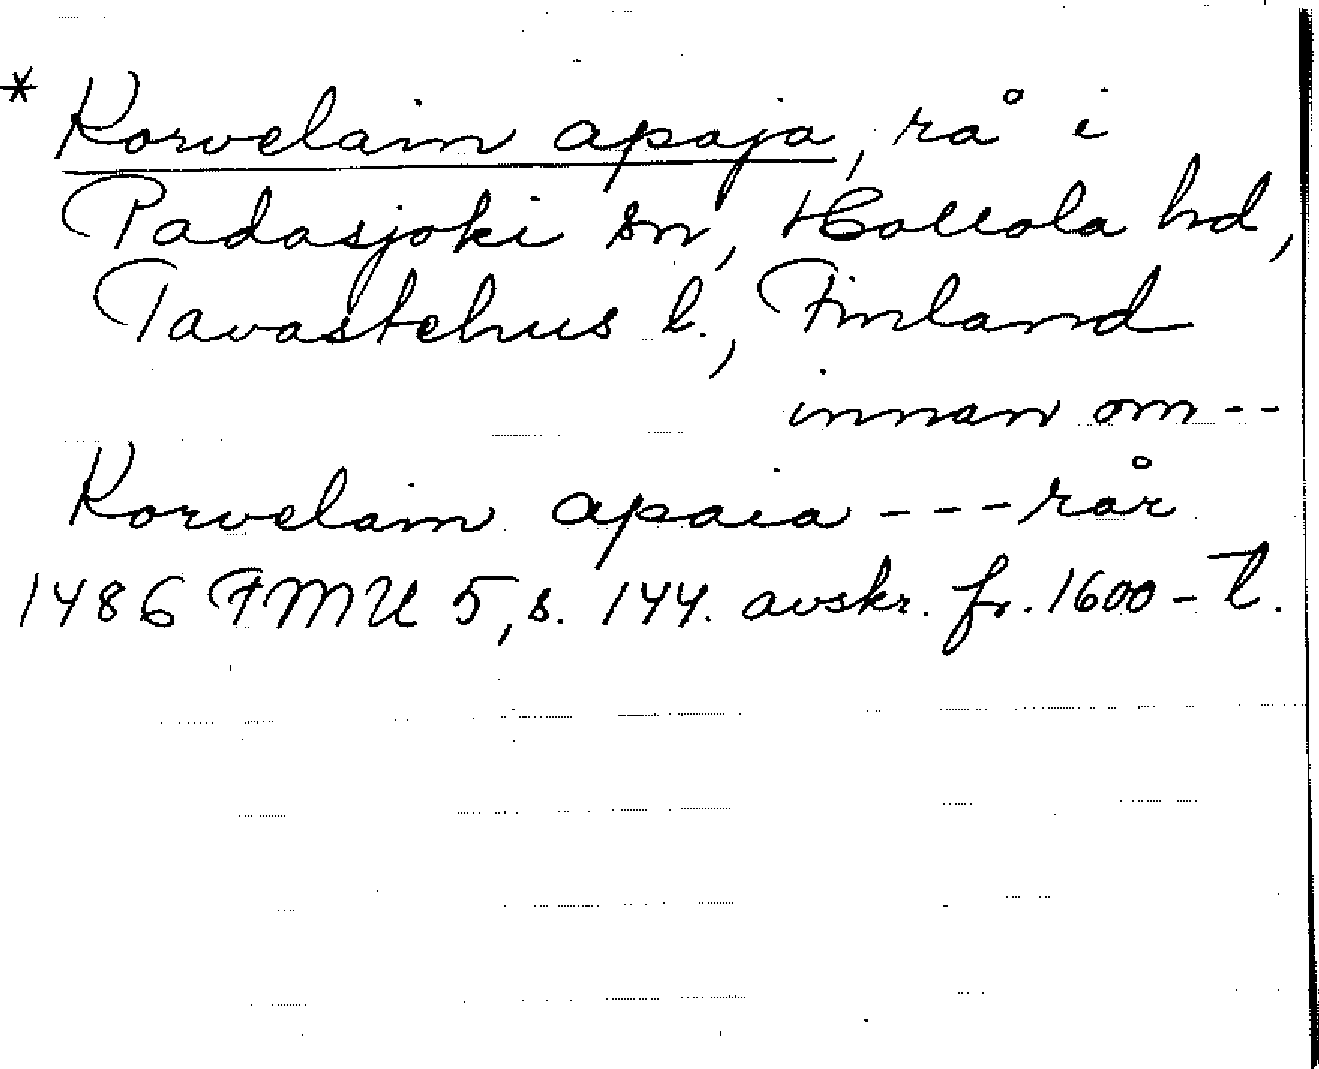 * Korvelain apaja, rå i
Padasjoki sn, Hollola hd,
Tavastehus l., Finland
innan om --
Korvelain apaia --- rår
1486 FMU 5, s. 144. avskr. fr. 1600-t.